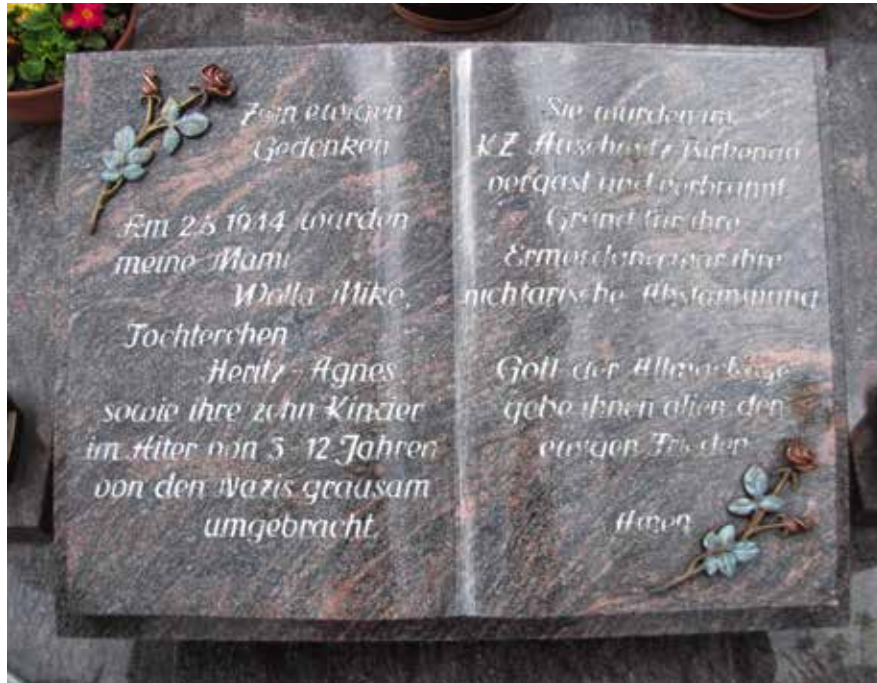 Zum ewigen
Gedenken
Am 2.8 1944 wurden
meine Mami
Walla Mike,
Töchterchen
Agnes
sowie ihre zehn Kinder
im Alter von 3-12 Jahren
von den Nazis grausam
umgebracht
Sie wurden im
KZ Auschwitz-Birkenau
vergast und verbrannt
Grund für ihre
Ermordung war ihre
nichtarische Abstammung
Gott der Allmächtige
gebe ihnen allen den
ewigen Frieden
Amen